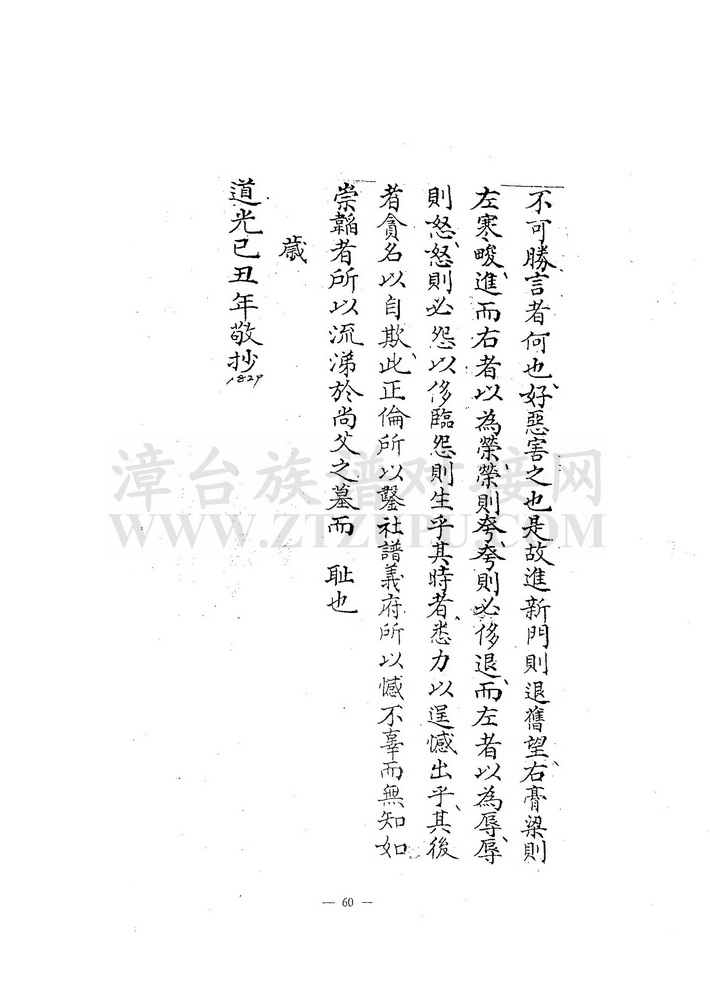 不可勝言者何也好惡害之也是故進新門則退舊望右膏梁則
左寒畯進而右者以為榮榮則夸夸則必侈退而左者以為辱辱
則怒怒則必怨以侈臨怨則生乎其時者悉力以逞憾出乎其後
者貪名以自欺此正倫所以鑿社譜義府所以憾不辜而無知如
崇韜者所以流涕於尚父之墓而 耻也
歲
道光己丑年敬抄
1829
漳台族谱对接网
WWW.ZTZUPU.COM
— 60 —